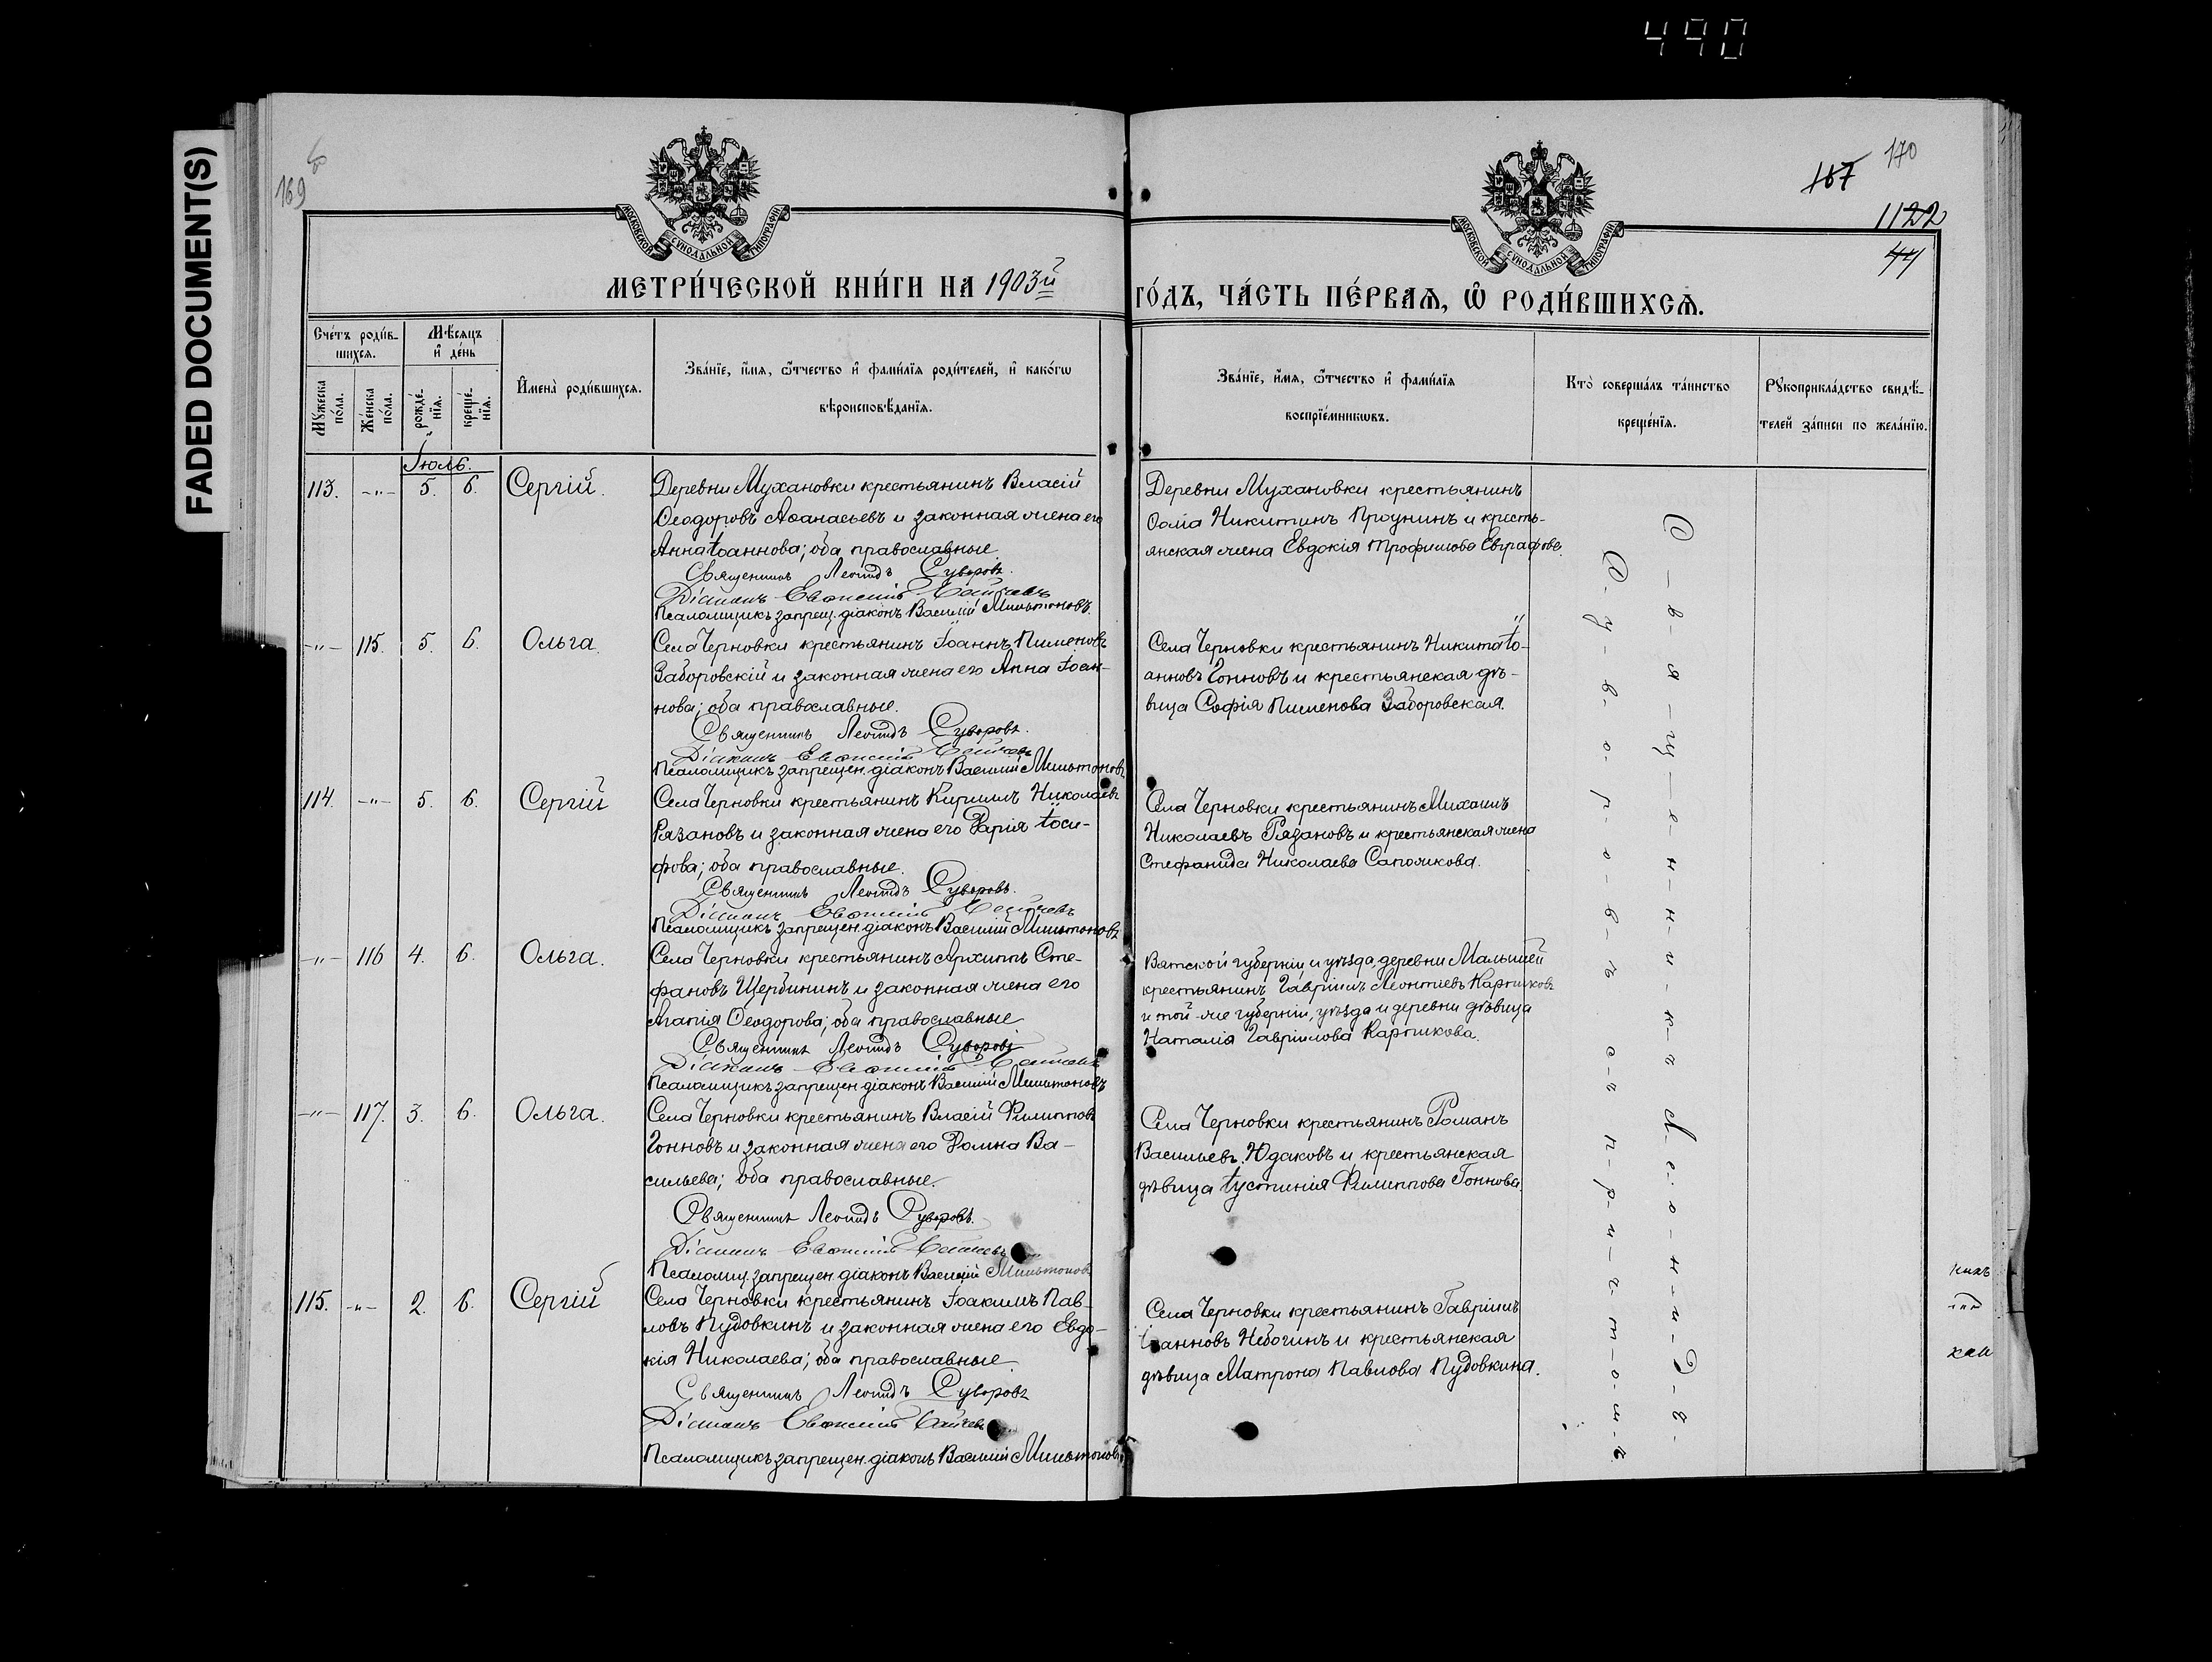 490
FADED DOCUMENT(S)
169
167
170
1122
44
МОСКОВСКОЙ СѴНОДАЛЬНОЙ ТИПОГРАФІИ
МОСКОВСКОЙ СѴНОДАЛЬНОЙ ТИПОГРАФІИ
МЕТРИ́ЧЕСКОЙ КНИ́ГИ НА 1903й
ГО́ДЪ, ЧА́СТЬ ПЕ́РВАѦ, Ѡ҆ РОДИ́ВШИХСѦ.
Сче́тъ роди́в-
шихсѧ.
Мѣ́сяцъ
и҆ де́нь
Мꙋ́жеска по́ла.
Же́нска по́ла.
рожде́-нїѧ.
креще́-нїѧ.
И҆мена̀ роди́вшихсѧ.
Зва́нїе, и҆́мѧ, ѻ҆́тчество и҆ фами́лїѧ роди́телей, и҆ како́гѡ
вѣроисповѣ́данїѧ.
Зва́нїе, и҆́мѧ, ѻ҆́тчество и҆ фами́лїѧ
воспрїе́мникѡвъ.
Кто̀ соверша́лъ та́инство
креще́нїѧ.
Рꙋкоприкла́дство свидѣ́-
телей за́писи по жела́нїю.
Іюль.
113. -"- 5. 6. Сергій.
Деревни Мухановки крестьянинъ Власій
Ѳеодоровъ Аѳанасьевъ и законная жена его
Анна Іоаннова; оба православные.
Священникъ Леонидъ Суворовъ.
Діаконъ Евѳимій
Псаломщикъ запрещ. діаконъ Василій Мильтоновъ.
Деревни Мухановки крестьянинъ
Ѳома Никитинъ Проунинъ и кресть-
янская жена Евдокія Трофимова Евграфова.
-"- 115. 5. 6. Ольга.
Села Черновки крестьянинъ Іоаннъ Пименовъ
Заборовскій и законная жена его Анна Іоан-
нова; оба православные.
Священникъ Леонидъ Суворовъ.
Діаконъ Евѳимій
Псаломщикъ запрещен. діаконъ Василій Мильтоновъ
Села Черновки крестьянинъ Никита Іо-
анновъ Гонновъ и крестьянская дѣ-
вица Софія Пименова Заборовская.
114. -"- 5. 6. Сергій
Села Черновки крестьянинъ Кириллъ Николаевъ
Рязановъ и законная жена его Дарія Іоси-
фова; оба православные.
Священникъ Леонидъ Суворовъ.
Діаконъ Евѳимій
Псаломщикъ запрещен. діаконъ Василій Мильтоновъ
Села Черновки крестьянинъ Михаилъ
Николаевъ Рязановъ и крестьянская жена
Стефанида Николаева Сапожкова.
-"- 116 4. 6. Ольга.
Села Черновки крестьянинъ Архиппъ Сте-
фановъ Щербининъ и законная жена его
Агапія Ѳеодорова; оба православные
Священникъ Леонидъ Суворовъ
Діаконъ Евѳимій
Псаломщикъ запрещен. діаконъ Василій Мильтоновъ
Вятской губерніи и уѣзда, деревни Малышей
крестьянинъ Гавріилъ Леонтіевъ Карпиковъ
и той-же губерніи, уѣзда и деревни дѣвица
Наталія Гавріилова Карпикова.
-"- 117. 3. 6. Ольга.
Села Черновки крестьянинъ Власій Филипповъ
Гонновъ и законная жена его Домна Ва-
сильева; оба православные.
Священникъ Леонидъ Суворовъ.
Діаконъ Евѳимій
Псаломщ. запрещен. діаконъ Василій Мильтоновъ
Села Черновки крестьянинъ Романъ
Васильевъ Юдаковъ и крестьянская
дѣвица Іустинія Филиппова Гоннова.
115. -"- 2. 6. Сергій
Села Черновки крестьянинъ Іоакимъ Пав-
ловъ Пудовкинъ и законная жена его Евдо-
кія Николаева; оба православные.
Священникъ Леонидъ Суворовъ
Діаконъ Евѳимій
Псаломщикъ запрещен. діаконъ Василій Мильтоновъ
Села Черновки крестьянинъ Гавріилъ
Іоанновъ Небогинъ и крестьянская
дѣвица Матрона Павлова Пудовкина.
С-в-я-щ-е-н-н-и-к-ъ Л-е-о-н-и-д-ъ
С-у-в-о-р-о-в-ъ с-ъ п-р-и-ч-т-о-м-ъ